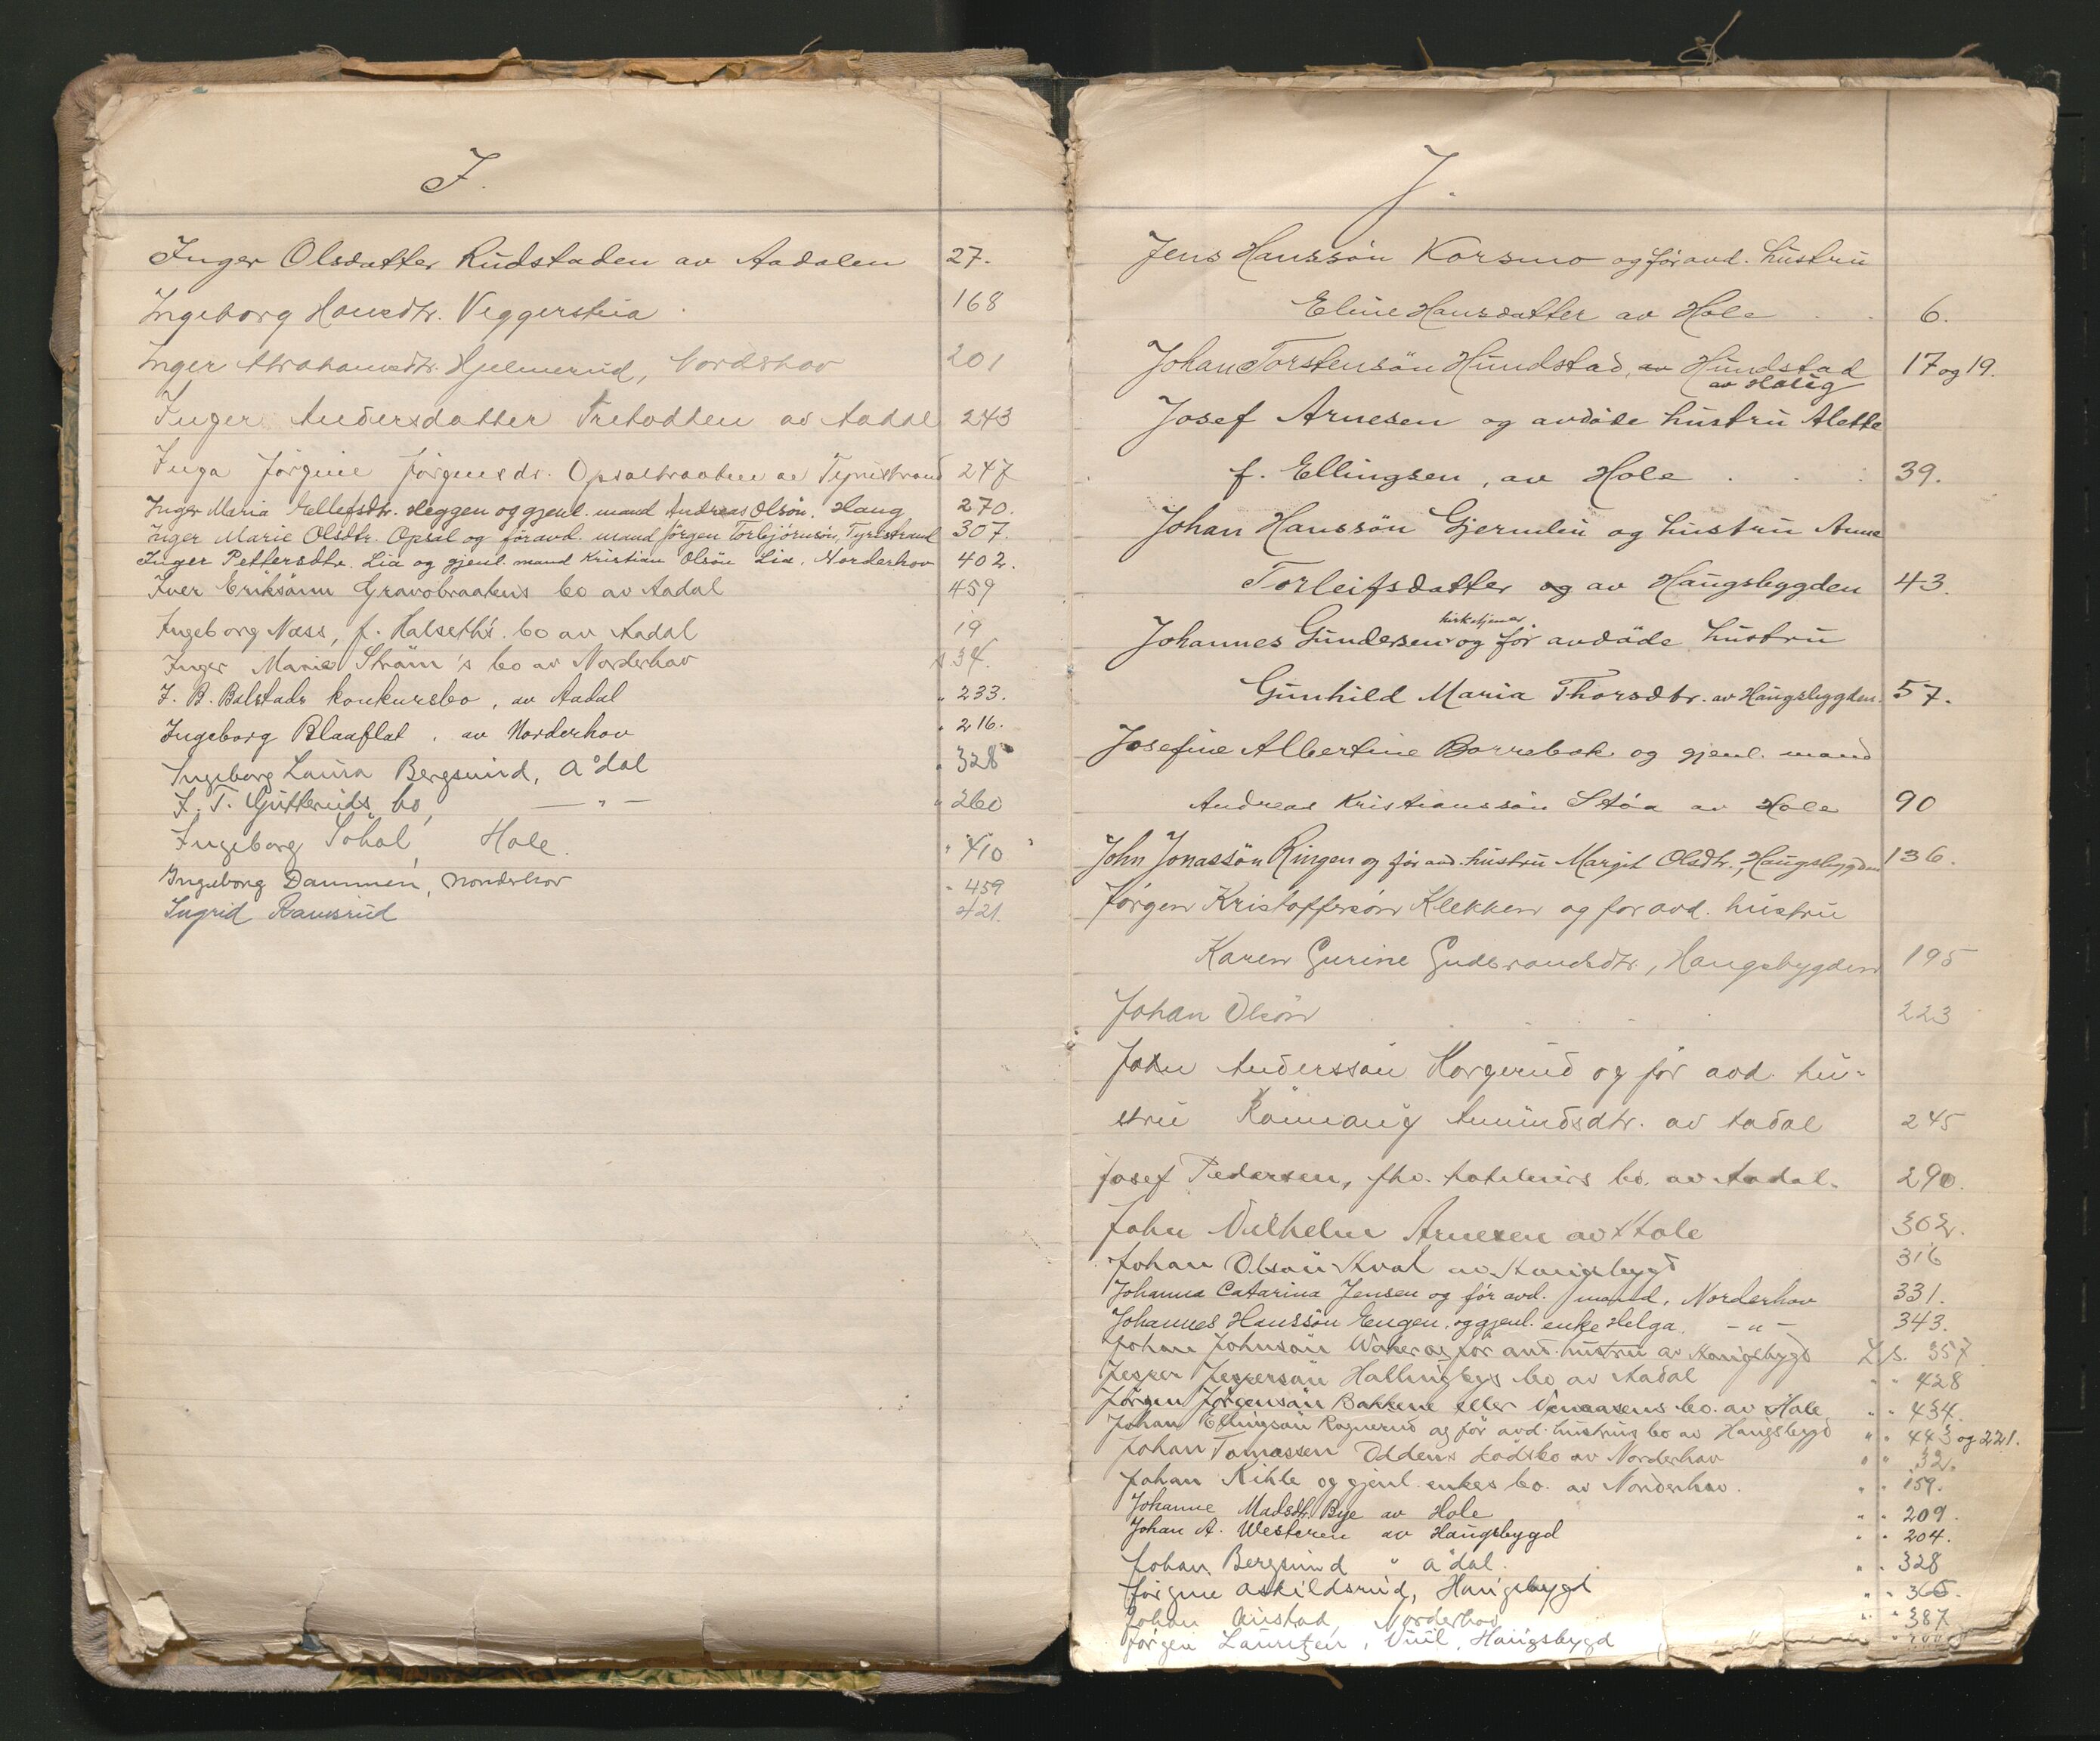 I.
Inger Olsdatter Rudstaden av Aadalen 27.
Ingeborg Hansdtr. Veggersteia 168
Inger Abrahamsdtr. Hjelmerud, Nordrhov 201
Inger Andersdatter Tretodden av Aadal 243
Inga Jørgine Jørgensdr. Opsalbraaten av Tyristrand 247
Inger Maria Ellefsdtr. Heggen og gjenl. mand Andreas Olsön, Haug 270.
Inger Marie Olsdtr. Opsal og før avd. mand Jörgen Torbjörnsön, Tyristrand 307.
Inger Pettersdtr. Lia og gjenl. mand Kristian Olsön Lia, Norderhov 402.
Iver Eriksönn Gravobraatens bo av Aadal 459
Ingeborg Næss, f. Halseth's bo av Aadal 19
Inger Marie Ström's bo av Norderhov 34.
I. B. Bolstads konkursbo, av Aadal " 233.
Ingeborg Blaaflat, av Norderhov " 216.
Ingeborg Laura Bergsund, Aadal " 328
I. T. Gutteruds bo, — " — " 260
Ingeborg Sohol, Hole. " 410
Ingeborg Dammen, Norderhov " 459
Ingrid Ramsrud 421.
J.
Jens Hanssön Korsmo og før avd. hustru
Eline Hansdatter av Hole 6.
Johan Torstensön Hundstad, av Hundstad 17 og 19.
av Haug
Josef Arnesen og avdöde hustru Alette
f. Ellingsen, av Hole 39.
Johan Hanssön Gjermli og hustru Anne
Torleifsdatter og av Haugsbygden 43.
kirketjener
Johannes Gundersen og før avdöde hustru
Gunhild Maria Thorsdtr. av Haugsbygden. 57.
Josefine Albertine Borrebæk og gjenl. mand
Andreas Kristianssön Stöa av Hole 90
John Jonassön Ringen og før avd. hustru Margit Olsdtr., Haugsbygden 136.
Jørgen Kristoffersön Klekken og før avd. hustru
Karen Gurine Gudbrandsdtr., Haugsbygden 195
Johan Olsön 223
John Anderssön Korgerud og før avd. hu-
stru Amundsdtr. av Aadal 245
Josef Pedersen, fhv. hoteleiers bo. av Aadal. 290.
John Vilhelm Arnesen av Hole 302.
Johan Olsön Hval av Haugsbygd 316
Johanna Catarina Jensen og før avd. mand, Norderhov 331.
Johannes Hanssön Engen, og gjenl. enke Helga, — " — 343.
Johan Johnsön Waker og før avd. hustru av Haugsbygd L/s. 357
Jesper Jespersön Hallingbys bo av Aadal " " 428
Jørgen Jörgensön Bakkene eller bo. av Hole " " 434.
Johan Ellingsön Rognerud og før avd. hustrus bo av Haugsbygd " " 443 og 221.
Johan Tomassen Oddens dødsbo av Norderhov " " 32.
Johan Kihle og gjenl. enkes bo. av Norderhov. " " 159.
Johanne Madsdtr. Bye av Hole " " 209.
Johan A. Westeren av Haugsbygd " " 204.
Johan Bergsund " Aadal. " " 328
Jörgine Askildsrud, Haugsbygd " " 365.
Johan Austad, Norderhov " " 387
Jörgen Lauritzen, Viul, Haugsbygd